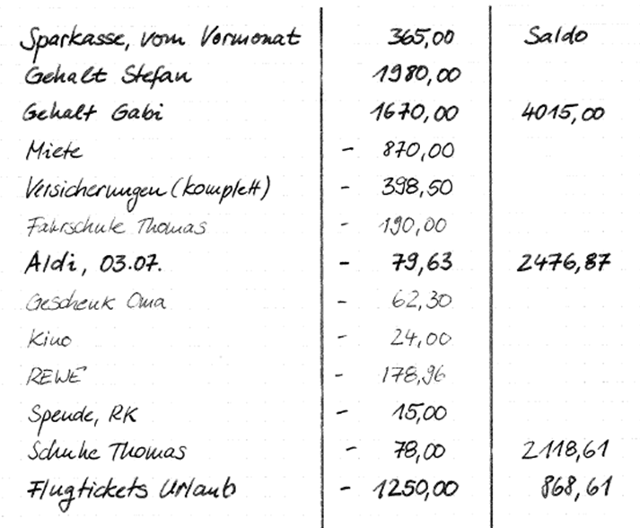 Sparkasse, vom Vormonat 365,00 Saldo
Gehalt Stefan 1980,00
Gehalt Gabi 1670,00 4015,00
Miete - 870,00
Versicherungen (komplett) - 398,50
Fahrschule Thomas - 190,00
Aldi, 03.07. - 79,63 2476,87
Geschenk Oma - 62,30
Kino - 24,00
REWE - 178,96
Spende, RK - 15,00
Schuhe Thomas - 78,00 2118,61
Flugtickets Urlaub - 1250,00 868,61